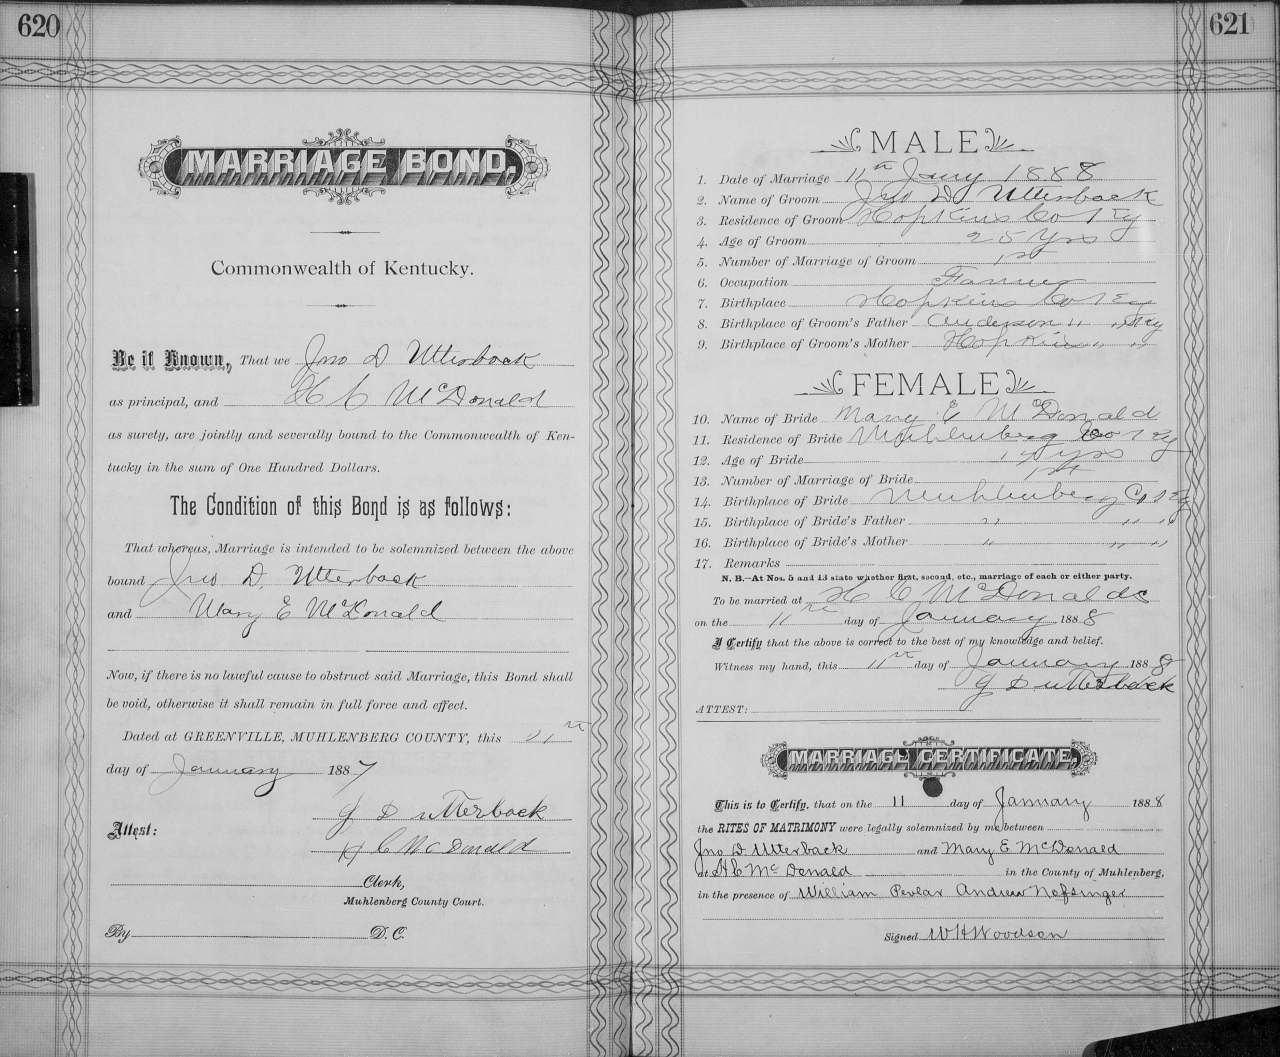 620
MARRIAGE BOND,
Commonwealth of Kentucky.
Be it Known, That we Jno D Utterback
as principal, and H C McDonald
as surety, are jointly and severally bound to the Commonwealth of Ken-
tucky in the sum of One Hundred Dollars.
The Condition of this Bond is as follows:
That whereas, Marriage is intended to be solemnized between the above
bound Jno D. Utterback
and Mary E McDonald
Now, if there is no lawful cause to obstruct said Marriage, this Bond shall
be void, otherwise it shall remain in full force and effect.
Dated at GREENVILLE, MUHLENBERG COUNTY, this
day of January 1887
J D Utterback
Attest: H C McDonald
Clerk,
Muhlenberg County Court.
By D.C.
621
MALE
1. Date of Marriage 11th Jany 1888
2. Name of Groom Jno D Utterback
3. Residence of Groom Hopkins Co Ky
4. Age of Groom 25 yrs
5. Number of Marriage of Groom 1st
6. Occupation Farmer
7. Birthplace Hopkins Co Ky
8. Birthplace of Groom's Father Anderson " " Ky
9. Birthplace of Groom's Mother Hopkins " "
FEMALE
10. Name of Bride Mary E McDonald
11. Residence of Bride Muhlenberg Co Ky
12. Age of Bride yrs
13. Number of Marriage of Bride 1st
14. Birthplace of Bride Muhlenberg Co Ky
15. Birthplace of Bride's Father " " "
16. Birthplace of Bride's Mother " " "
17. Remarks
N. B.—At Nos. 5 and 13 state whether first, second, etc., marriage of each or either party.
To be married at H C McDonalds
on the 11th day of January 1888
I Certify that the above is correct to the best of my knowledge and belief.
Witness my hand, this 11th day of January 1888
J D Utterback
ATTEST:
MARRIAGE CERTIFICATE,
This is to Certify, that on the 11 day of January 1888
the RITES OF MATRIMONY were legally solemnized by me between
Jno D Utterback and Mary E McDonald
at H C McDonald in the County of Muhlenberg,
in the presence of William Pevlar Andrew Nofsinger
Signed W H Woodson